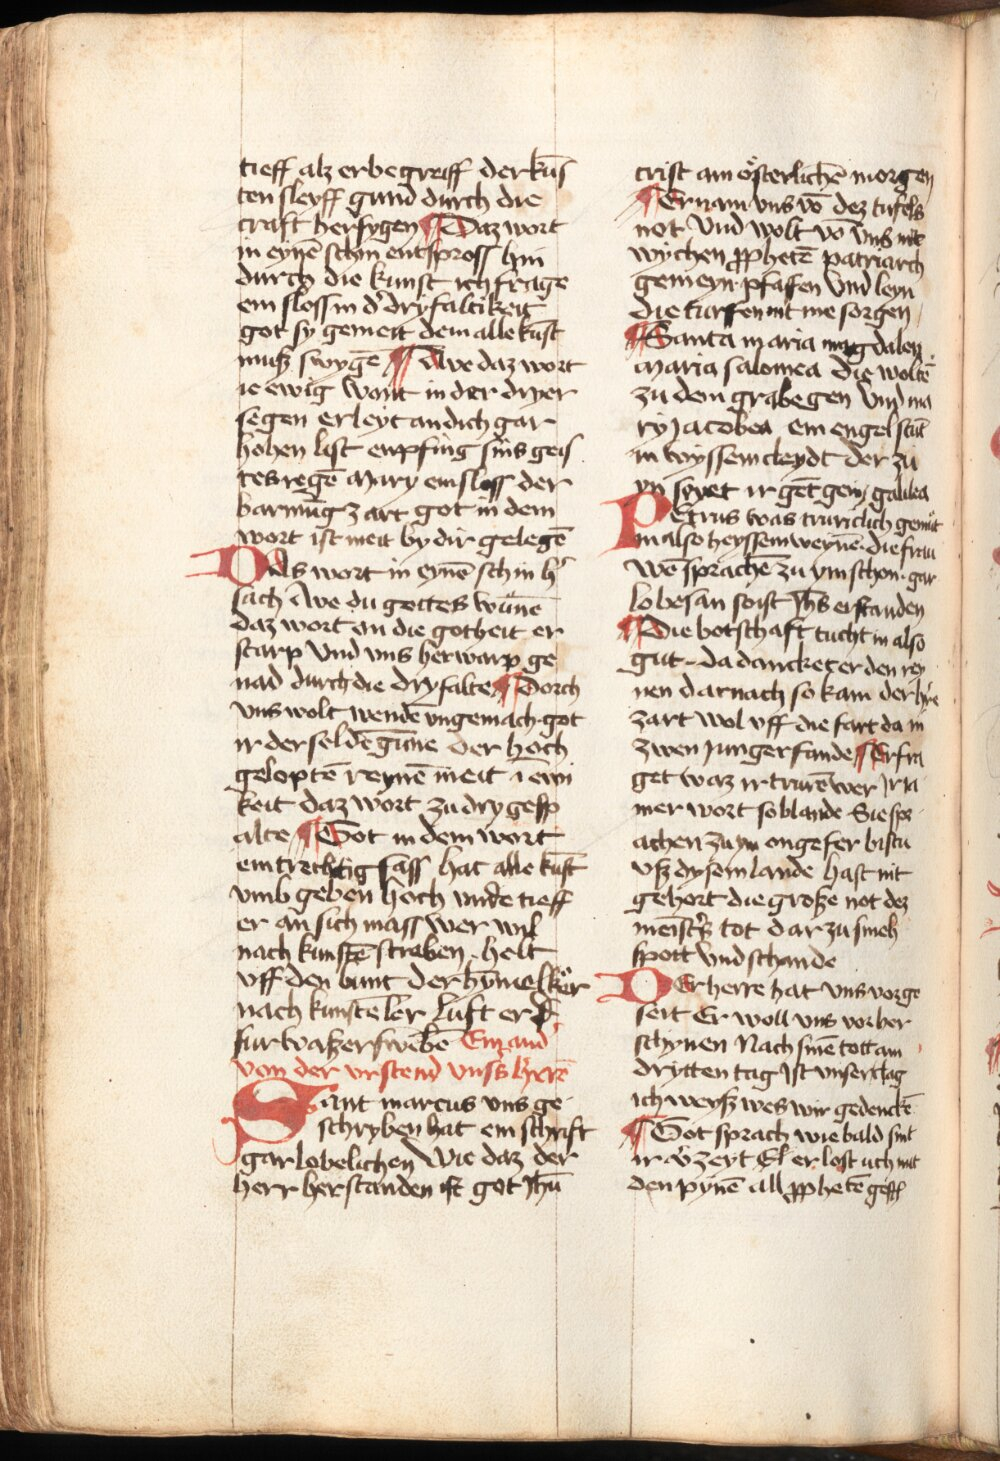 tieff alz er begreiff der kūs
ten sleyff gund durch die
craft her sygen ¶ Daz wort
in eynē schin entspross hin
durch die kunst ich frage
ein sloss in d' dryfaltikeit
got sy gemeit dem alle kūst
muß swygē ¶ Awe daz wort
ie ewig wont in der dryer
segen er leyt an dich gar
hohen list enpfing sins geis
tes regē Mary ein sloss der
barmūg zart got in dem
wort ist meit by dir gelegē
Das wort in eynē schin h'
sach Awe du gottes wūne
daz wort an die gotheit er
starp Und uns herwarp ge
nad durch die dryfalte ¶ Dorch
uns wolt wendē ungemach got
ir der seldē gūne der hoch
geloptē reynē meit i ewi
keit daz wort zu dry gesp
alte ¶ Got in dem wort
eintrechtig sass hat alle kūst
umb geben hoch unde tieff
er an sich mass wer wil
nach kunstē streben helt
uff den bunt der hymel kōr
nach kunstē ler luft erd
fur waßer swebē Ein and'
von der urstend unss h'rrē
Sant marcus uns ge
schryben hat ein schrift
gar lobelichen Wie daz der
herr herstanden ist got Jhū
crist am österlichē morgen
¶ Er nam uns vō dez tufels
not Und wolt vō uns nit
wychen pphetē patriarch
gemeyn pfaffen Und leyn
die turffen nit me sorgen
¶ Santa maria magdalen
Maria salomea die woltē
zu dem grabe gen Und ma
ry Jacobea ein engel stūt
in wyssem cleydt der zu
yn spyet ir gēt gein galilea
Petrus was truriclich gemüt
im also heyssem weynē. die frau
wē sprachē zu ym schon. gar
lobesan so ist Jhs erstanden
¶ Die botschaft tucht in also
gut. da dancket er den rey
nen darnach so kam der h're
zart wol uff die fart da in
zwen junger fande ¶ Er fra
get waz ir trurē wer Jr ia
mer wort so blande Sie spr
achen zu ym ongefer bistu
uß dysem lande hast nit
gehort die große not dez
meist's tot dar zu smeh
spott Und schande
Der herre hat uns vorge
seit Er woll uns vor her
schynen Nach sinē tott am
drytten tag Jst unser clag
ich weyß wes wir gedenckē
¶ Got sprach wie bald sint
ir zeyt El er lost uch mit
den pynē all pphetē